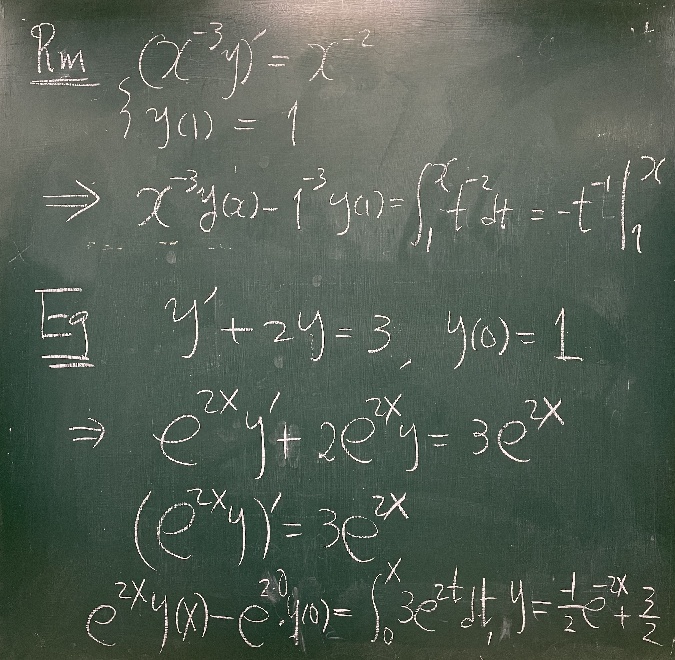 Rm (x⁻³y)′ = x⁻²
{ y(1) = 1
⇒ x⁻³y(x) − 1⁻³y(1) = ∫₁ˣ t⁻² dt = −t⁻¹|₁ˣ
Eg y′ + 2y = 3, y(0) = 1
⇒ e²ˣy′ + 2e²ˣy = 3e²ˣ
(e²ˣy)′ = 3e²ˣ
e²ˣy(x) − e²·⁰y(0) = ∫₀ˣ 3e²ᵗdt, y = −1/2 e⁻²ˣ + 3/2